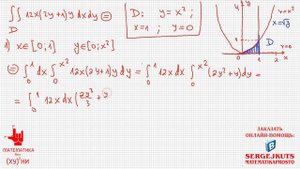 ∬ 12x(2y+1)y dx dy =
D
D: y=x²;
x=1 ; y=0
1) x∈[0;1] y∈[0;x²]
= ∫₀¹ dx ∫₀^{x²} 12x(2y+1)y dy = ∫₀¹ 12x dx ∫₀^{x²} (2y²+y) dy =
= ∫₀¹ 12x dx (2y³/3 + y
y
y=x²
x=√y
1
D
0 1 2 x
МАТЕМАТИКА
без
(ХУ)*НИ
ЗАКАЗАТЬ
ОНЛАЙН-ПОМОЩЬ:
SERGEJKUTS
МАТЕМАТИКАПРОСТО